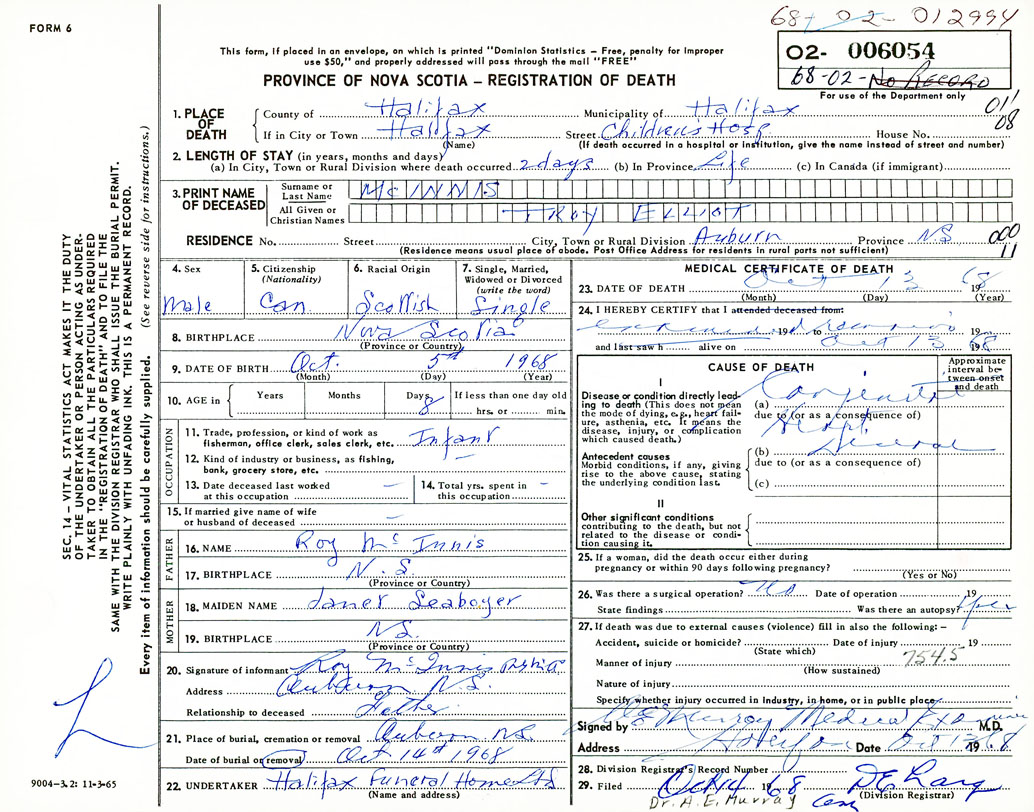 FORM 6
68-02-012994
This form, if placed in an envelope, on which is printed "Dominion Statistics – Free, penalty for improper
use $50," and properly addressed will pass through the mail "FREE"
PROVINCE OF NOVA SCOTIA – REGISTRATION OF DEATH
O2- 006054
68-02-No RECORD
For use of the Department only
011
08
1. PLACE OF DEATH
County of Halifax Municipality of Halifax
If in City or Town Halifax Street Children's Hosp. House No.
(Name) (If death occurred in a hospital or institution, give the name instead of street and number)
2. LENGTH OF STAY (in years, months and days)
(a) In City, Town or Rural Division where death occurred 2 days (b) In Province Life (c) In Canada (if immigrant)
3. PRINT NAME OF DECEASED
Surname or Last Name McINNIS
All Given or Christian Names TROY ELLIOT
RESIDENCE No. Street City, Town or Rural Division Auburn Province N.S.
(Residence means usual place of abode. Post Office Address for residents in rural parts not sufficient)
000
11
4. Sex
Male
5. Citizenship (Nationality)
Can.
6. Racial Origin
Scottish
7. Single, Married, Widowed or Divorced (write the word)
Single
8. BIRTHPLACE Nova Scotia
(Province or Country)
9. DATE OF BIRTH Oct. 5th 1968
(Month) (Day) (Year)
10. AGE in Years Months Days 8 If less than one day old
hrs. or min.
OCCUPATION
11. Trade, profession, or kind of work as fisherman, office clerk, sales clerk, etc. Infant
12. Kind of industry or business, as fishing, bank, grocery store, etc. –
13. Date deceased last worked at this occupation –
14. Total yrs. spent in this occupation –
15. If married give name of wife or husband of deceased –
FATHER
16. NAME Roy Mc Innis
17. BIRTHPLACE N.S.
(Province or Country)
MOTHER
18. MAIDEN NAME Janet Seaboyer
19. BIRTHPLACE N.S.
(Province or Country)
20. Signature of informant Roy McInnis
Address Auburn N.S.
Relationship to deceased Father
21. Place of burial, cremation or removal Auburn NS
Date of burial or removal Oct 14th 1968
22. UNDERTAKER Halifax Funeral Home Ltd
(Name and address)
MEDICAL CERTIFICATE OF DEATH
23. DATE OF DEATH Oct 13 1968
(Month) (Day) (Year)
24. I HEREBY CERTIFY that I attended deceased from:
19 to 19
and last saw h alive on Oct 13 1968
CAUSE OF DEATH
Approximate interval between onset and death
I
Disease or condition directly leading to death (This does not mean the mode of dying, e.g., heart failure, asthenia, etc. It means the disease, injury, or complication which caused death.)
(a) Congenital
due to (or as a consequence of)
Heart
Antecedent causes
Morbid conditions, if any, giving rise to the above cause, stating the underlying condition last.
(b)
due to (or as a consequence of)
(c)
II
Other significant conditions contributing to the death, but not related to the disease or condition causing it.
25. If a woman, did the death occur either during pregnancy or within 90 days following pregnancy?
(Yes or No)
26. Was there a surgical operation? No Date of operation 19
State findings Was there an autopsy? Yes
27. If death was due to external causes (violence) fill in also the following: –
Accident, suicide or homicide? Date of injury 19
(State which)
754.5
Manner of injury
(How sustained)
Nature of injury
Specify whether injury occurred in industry, in home, or in public place
Signed by Murray Medical Examiner M.D.
Address Halifax Date Oct 13 1968
28. Division Registrar's Record Number
29. Filed Oct 14 1968
(Division Registrar)
Dr. A.E. Murray
SEC. 14 – VITAL STATISTICS ACT MAKES IT THE DUTY
OF THE UNDERTAKER OR PERSON ACTING AS UNDER-
TAKER TO OBTAIN ALL THE PARTICULARS REQUIRED
IN THE "REGISTRATION OF DEATH" AND TO FILE THE
SAME WITH THE DIVISION REGISTRAR WHO SHALL ISSUE THE BURIAL PERMIT.
WRITE PLAINLY WITH UNFADING INK. THIS IS A PERMANENT RECORD.
Every item of information should be carefully supplied. (See reverse side for instructions.)
9004-3.2: 11-3-65